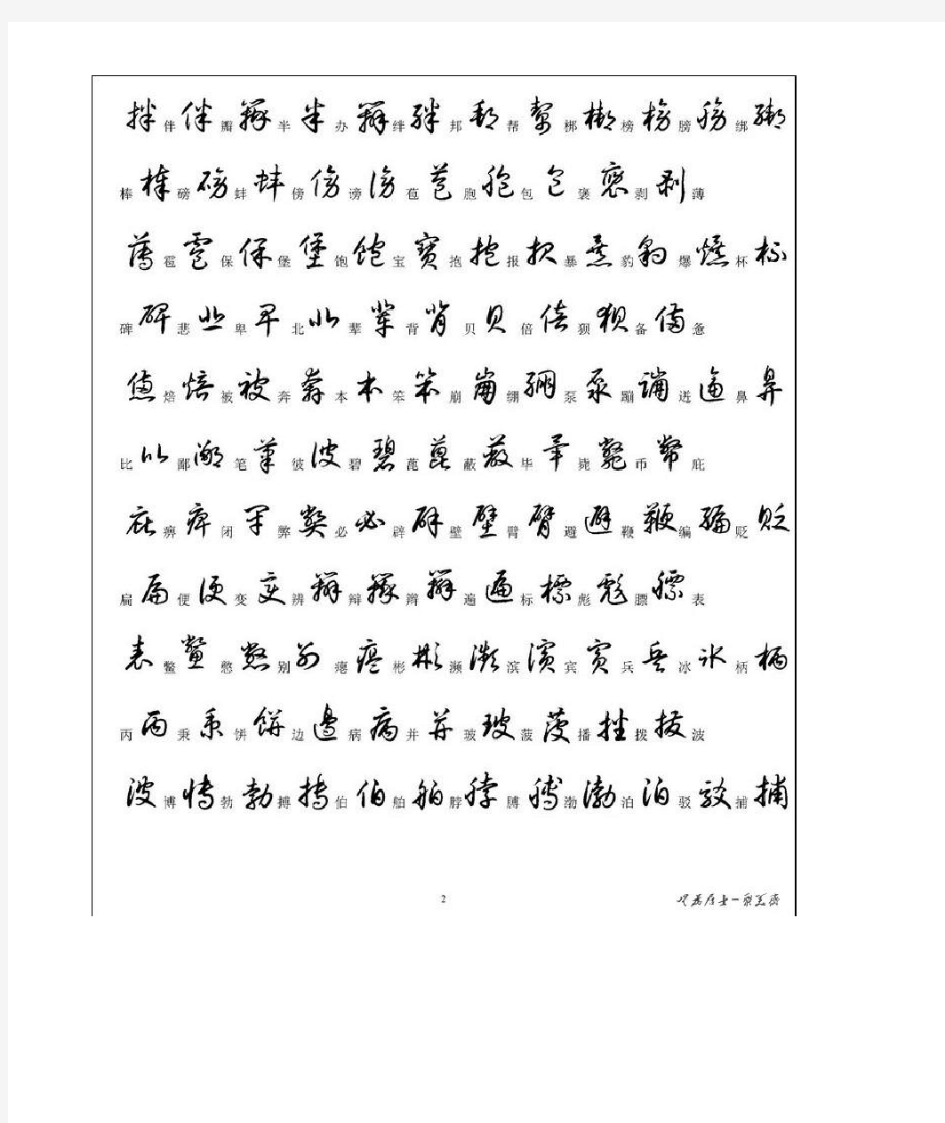 拌 伴 伴 瓣 瓣 半 半 办 辦 绊 絆 邦 邦 帮 幫 梆 梆 榜 榜 膀 膀 绑 綁
棒 棒 磅 磅 蚌 蚌 傍 傍 谤 謗 苞 苞 胞 胞 包 包 褒 褒 剥 剥 薄
薄 雹 雹 保 保 堡 堡 饱 飽 宝 寶 抱 抱 报 报 暴 暴 豹 豹 爆 爆 杯 杯
碑 碑 悲 悲 卑 卑 北 北 辈 輩 背 背 贝 貝 倍 倍 狈 狽 备 備 惫
憊 焙 焙 被 被 奔 奔 本 本 笨 笨 崩 崩 绷 繃 泵 泵 蹦 蹦 迸 逼 鼻 鼻
比 比 鄙 鄙 笔 筆 彼 彼 碧 碧 蓖 蓖 蔽 蔽 毕 畢 毙 斃 币 幣 庇
庇 痹 痹 闭 閉 弊 弊 必 必 辟 辟 壁 壁 臂 臂 避 避 鞭 鞭 编 編 贬 貶
扁 扁 便 便 变 变 辨 辨 辩 辯 辫 辮 遍 遍 标 標 彪 彪 膘 膘 表
表 鳖 鱉 憋 憋 别 别 瘪 癟 彬 彬 濒 瀕 滨 濱 宾 賓 兵 兵 冰 冰 柄 柄
丙 丙 秉 秉 饼 餅 边 邊 病 病 并 并 玻 玻 菠 菠 播 播 拨 撥 波
波 博 博 勃 勃 搏 搏 伯 伯 舶 舶 脖 脖 膊 膊 渤 渤 泊 泊 驳 駁 捕 捕
2